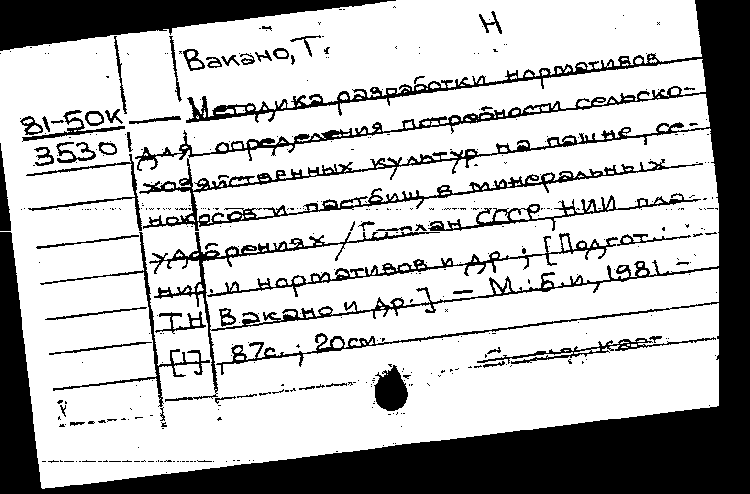 Н
Вакано, Т.
81-50к Методика разработки нормативов
3530 для определения потребности сельско-
хозяйственных культур на пашне, се-
нокосов и пастбищ в минеральных
удобрениях / Госплан СССР, НИИ пла-
нир. и нормативов и др.; [Подгот.:
Т.Н. Вакано и др.] – М.: Б.и., 1981. –
[1], 87с.; 20см.